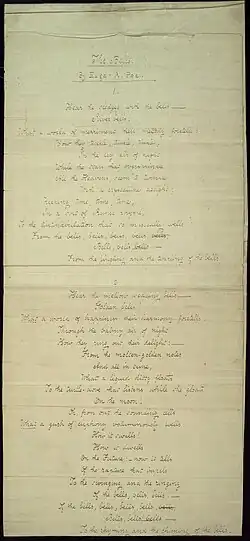 The Bells.
By Edgar A. Poe.
1.
Hear the sledges with the bells —
Silver bells!
What a world of merriment their melody foretells!
How they tinkle, tinkle, tinkle,
In the icy air of night!
While the stars that oversprinkle
All the Heavens, seem to twinkle
With a crystalline delight;
Keeping time, time, time,
In a sort of Runic rhyme,
To the tintinabulation that so musically wells
From the bells, bells, bells, bells, bells
Bells, bells, bells —
From the jingling and the tinkling of the bells.
2
Hear the mellow wedding bells —
Golden bells!
What a world of happiness their harmony foretells!
Through the balmy air of night
How they ring out their delight! —
From the molten-golden notes
And all in tune,
What a liquid ditty floats
To the turtle-dove that listens while she gloats
On the moon!
Oh, from out the sounding cells
What a gush of euphony voluminously wells!
How it swells!
How it dwells
On the Future! — how it tells
Of the rapture that impels
To the swinging and the ringing
Of the bells, bells, bells —
Of the bells, bells, bells, bells
Bells, bells, bells —
To the rhyming and the chiming of the bells.